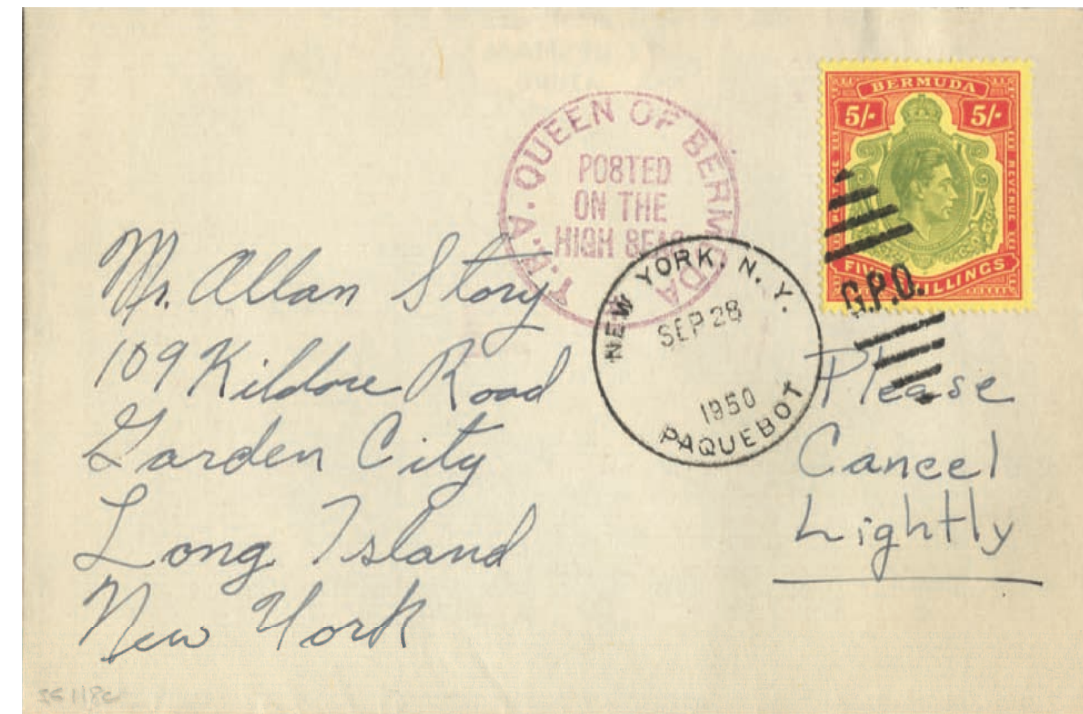 BERMUDA
5/- 5/-
POSTAGE REVENUE
SHILLINGS
G.P.O.
QUEEN OF BERMUDA
POSTED
ON THE
HIGH SEAS
NEW YORK, N.Y.
SEP 28
1950
PAQUEBOT
Mr. Allan Story
109 Kildare Road
Garden City
Long Island
New York
Please
Cancel
Lightly